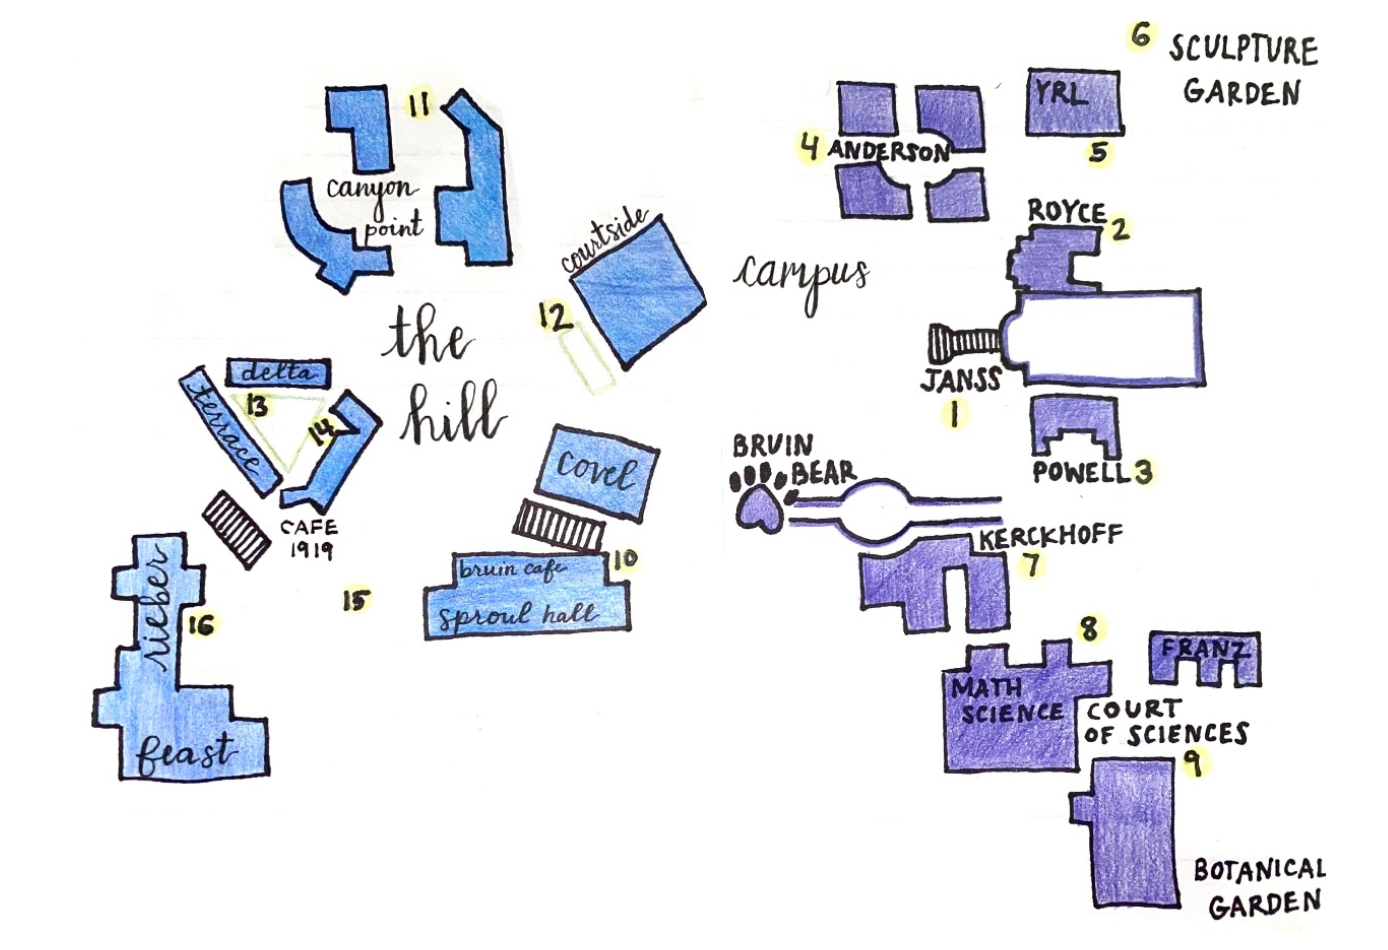 11
canyon
point
courtside
12
the
hill
delta
terrace
13
14
CAFE
1919
covel
10
bruin cafe
sproul hall
15
rieber
16
feast
campus
6
SCULPTURE
GARDEN
YRL
5
4 ANDERSON
ROYCE
2
JANSS
1
POWELL 3
BRUIN
BEAR
KERCKHOFF
7
8
FRANZ
MATH
SCIENCE
COURT
OF SCIENCES
9
BOTANICAL
GARDEN